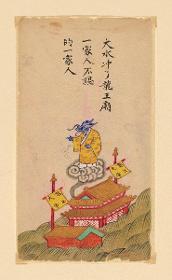 大水冲了龍王廟
一家人不認
的一家人